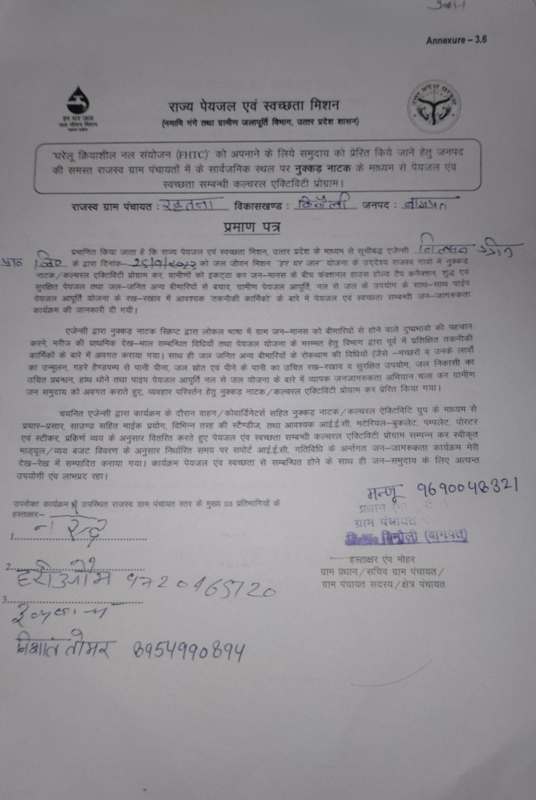 Annexure – 3.6
हर घर जल
जल जीवन मिशन
राज्य पेयजल एवं स्वच्छता मिशन
(नमामि गंगे तथा ग्रामीण जलापूर्ति विभाग, उत्तर प्रदेश शासन)
'घरेलू क्रियाशील नल संयोजन (FHTC)' को अपनाने के लिये समुदाय को प्रेरित किये जाने हेतु जनपद
की समस्त राजस्व ग्राम पंचायतों में के सार्वजनिक स्थल पर नुक्कड़ नाटक के माध्यम से पेयजल एंव
स्वच्छता सम्बन्धी कल्चरल एक्टिविटी प्रोग्राम।
राजस्व ग्राम पंचायत : विकासखण्ड : बिनौली जनपद : बागपत
प्रमाण पत्र
प्रमाणित किया जाता है कि राज्य पेयजल एवं स्वच्छता मिशन, उत्तर प्रदेश के माध्यम से सूचीबद्ध एजेन्सी
के द्वारा दिनांक को जल जीवन मिशन "हर घर जल" योजना के उद्देश्य राजस्व गांवों में नुक्कड़
नाटक/कल्चरल एक्टिविटी प्रोग्राम कर, ग्रामीणों को इकट्ठा कर जन-मानस के बीच फंक्शनल हाउस होल्ड टैप कनेक्शन, शुद्ध एवं
सुरक्षित पेयजल तथा जल-जनित अन्य बीमारियों से बचाव, ग्रामीण पेयजल आपूर्ति, नल से जल के उपयोग के साथ-साथ पाईप
पेयजल आपूर्ति योजना के रख-रखाव में आवश्यक तकनीकी कार्मिकों के बारे में पेयजल एवं स्वच्छता सम्बन्धी जन-जागरूकता
कार्यक्रम की जानकारी दी गयी।
एजेन्सी द्वारा नुक्कड़ नाटक स्क्रिप्ट द्वारा लोकल भाषा में ग्राम जन-मानस को बीमारियों से होने वाले दुष्प्रभावों की पहचान
करने, मरीज की प्राथमिक देख-भाल सम्बन्धित विधियों तथा पेयजल योजना के मरम्मत हेतु विभाग द्वारा पूर्व में प्रशिक्षित तकनीकी
कार्मिकों के बारे में अवगत कराया गया। साथ ही जल जनित अन्य बीमारियों के रोकथाम की विधियों (जैसे -मच्छरों व उनके लार्वा
का उन्मूलन, गहरे हैण्डपम्प से पानी पीना, जल स्रोत एवं पीने के पानी का उचित रख-रखाव व सुरक्षित उपयोग, जल निकासी का
उचित प्रबन्धन, हांथ धोने तथा पाईप पेयजल आपूर्ति नल से जल योजना के बारे में व्यापक जनजागरूकता अभियान चला कर ग्रामीण
जन समुदाय को अवगत कराते हुए, व्यवहार परिवर्तन हेतु नुक्कड़ नाटक/कल्चरल एक्टिविटी प्रोग्राम कर प्रेरित किया गया।
चयनित एजेन्सी द्वारा कार्यक्रम के दौरान वाहन/कोवार्डिनेटर्स सहित नुक्कड़ नाटक/कल्चरल एक्टिविटि ग्रुप के माध्यम से
प्रचार-प्रसार, साउण्ड सहित माईक प्रयोग, विभिन्न तरह की स्टैण्डीज, तथा आवश्यक आई.ई.सी. मटेरियल-बुकलेट, पम्पलेट, पोस्टर
एवं स्टीकर, प्रकिर्ण व्यय के अनुसार वितरित करते हुए पेयजल एंव स्वच्छता सम्बन्धी कल्चरल एक्टिविटी प्रोग्राम सम्पन्न कर स्वीकृत
माड्यूल/व्यय बजट विवरण के अनुसार निर्धारित समय पर सपोर्ट आई.ई.सी. गतिविधि के अर्न्तगत जन-जागरूकता कार्यक्रम मेरी
देख-रेख में सम्पादित कराया गया। कार्यक्रम पेयजल एंव स्वच्छता से सम्बन्धित होने के साथ ही जन-समुदाय के लिए अत्यन्त
उपयोगी एंव लाभप्रद रहा।
उपरोक्त कार्यक्रम में उपस्थित राजस्व ग्राम पंचायत स्तर के मुख्य 03 प्रतिभागियों के
हस्ताक्षर-
1.
2.
हरीओम 9720465720
3.
निशांत तोमर 8954990894
मन्जू 9690048321
प्रधान
ग्राम पंचायत
बिनौली (बागपत)
हस्ताक्षर एंव मोहर
ग्राम प्रधान/सचिव ग्राम पंचायत/
ग्राम पंचायत सदस्य/क्षेत्र पंचायत